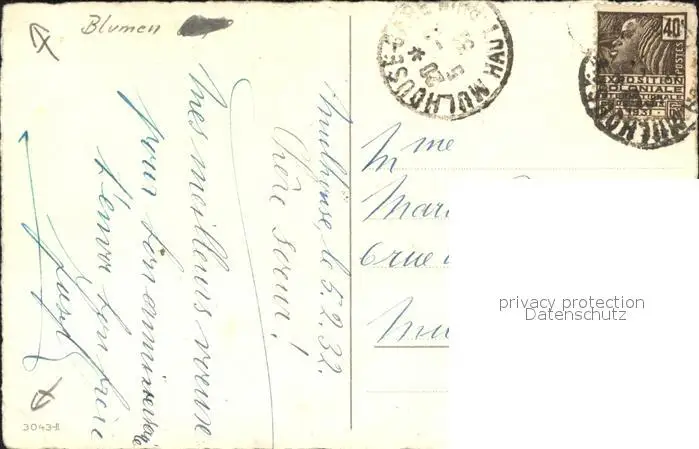 Blumen
Mulhouse, le 5.2.32.
Chère soeur!
Mes meilleurs voeuxe
pour ton anniversaire
t'envoi ton frère
3043-II
MULHOUSE-GARE HAUT RHIN
20
5 2
32
40c
POSTES
EXPOSITION
COLONIALE
INTERNATIONALE
PARIS 1931
MULHOUSE
Mme
Mar
6 rue
Mu
privacy protection
Datenschutz